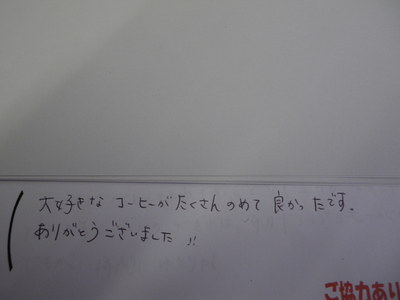 大好きな コーヒーが たくさん のめて 良かったです.
ありがとうございました !!
ご協力あり